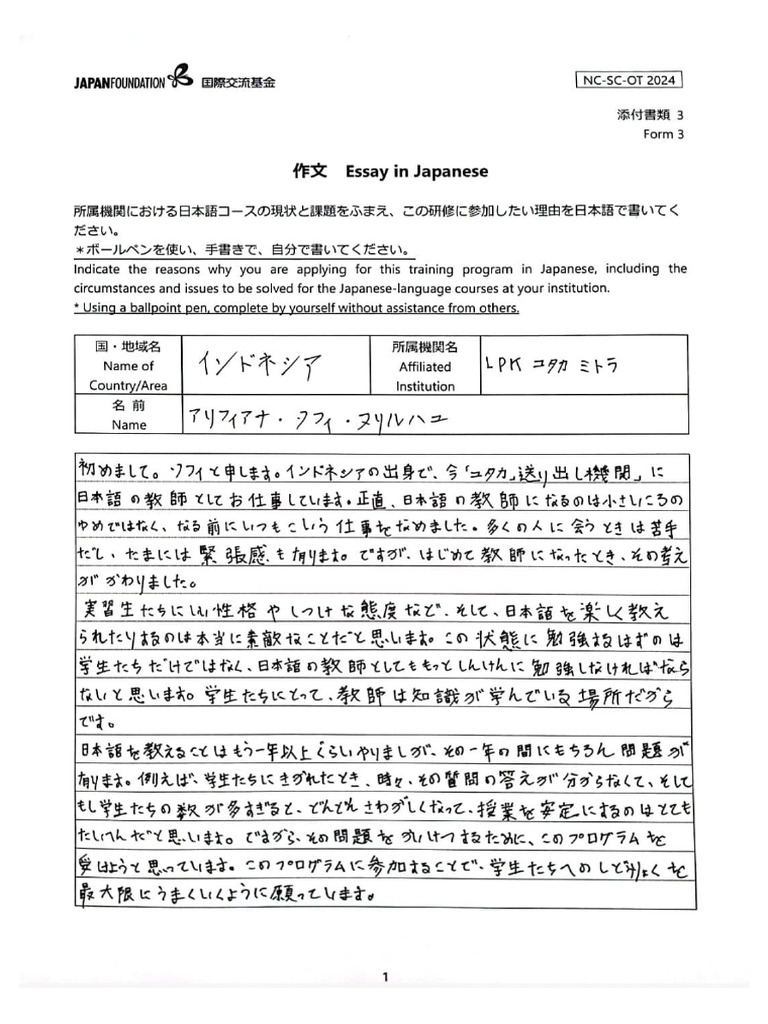 JAPANFOUNDATION 国際交流基金
NC-SC-OT 2024
添付書類 3
Form 3
作文 Essay in Japanese
所属機関における日本語コースの現状と課題をふまえ、この研修に参加したい理由を日本語で書いてく
ださい。
＊ボールペンを使い、手書きで、自分で書いてください。
Indicate the reasons why you are applying for this training program in Japanese, including the
circumstances and issues to be solved for the Japanese-language courses at your institution.
* Using a ballpoint pen, complete by yourself without assistance from others.
国・地域名
Name of
Country/Area
インドネシア
所属機関名
Affiliated
Institution
LPK ユタカ ミトラ
名 前
Name
アリフィアナ・ワフィ・ヌリルハユ
初めまして。ワフィと申します。インドネシアの出身で、今「ユタカ」送り出し機関」に
日本語の教師としてお仕事しています。正直、日本語の教師になるのは小さいころの
ゆめではなく、なる前にいつもこいう仕事をなめました。多くの人に会うときは苦手
だし、たまには緊張感も有ります。ですが、はじめて教師になったとき、その考え
がかわりました。
実習生たちにいい性格やしつけな態度など、そして、日本語を楽しく教え
られたりするのは本当に素敵なことだと思います。この状態に勉強するはずのは
学生たちだけではなく、日本語の教師としてももっとしんけんに勉強しなければなら
ないと思います。学生たちにとって、教師は知識が学んでいる場所だから
です。
日本語を教えることはもう一年以上くらいやりましが、その一年の間にもちろん問題が
有ります。例えば、学生たちにきかれたとき、時々、その質問の答えが分からなくて、そして
もし学生たちの数が多すぎると、どんどんさわがしくなって、授業を安定にするのはとても
たいへんだと思います。ですから、その問題をかいけつするために、このプログラムを
受けようと思っています。このプログラムに参加することで、学生たちへのしどうりょくを
最大限にうまくいくように願っています。
1